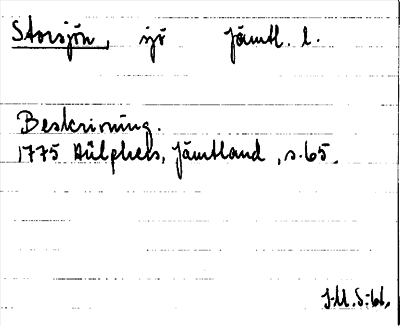 Storsjön, sjö Jämtl. l.
Beskrivning.
1775 Hülphers, Jämtland, s. 65.